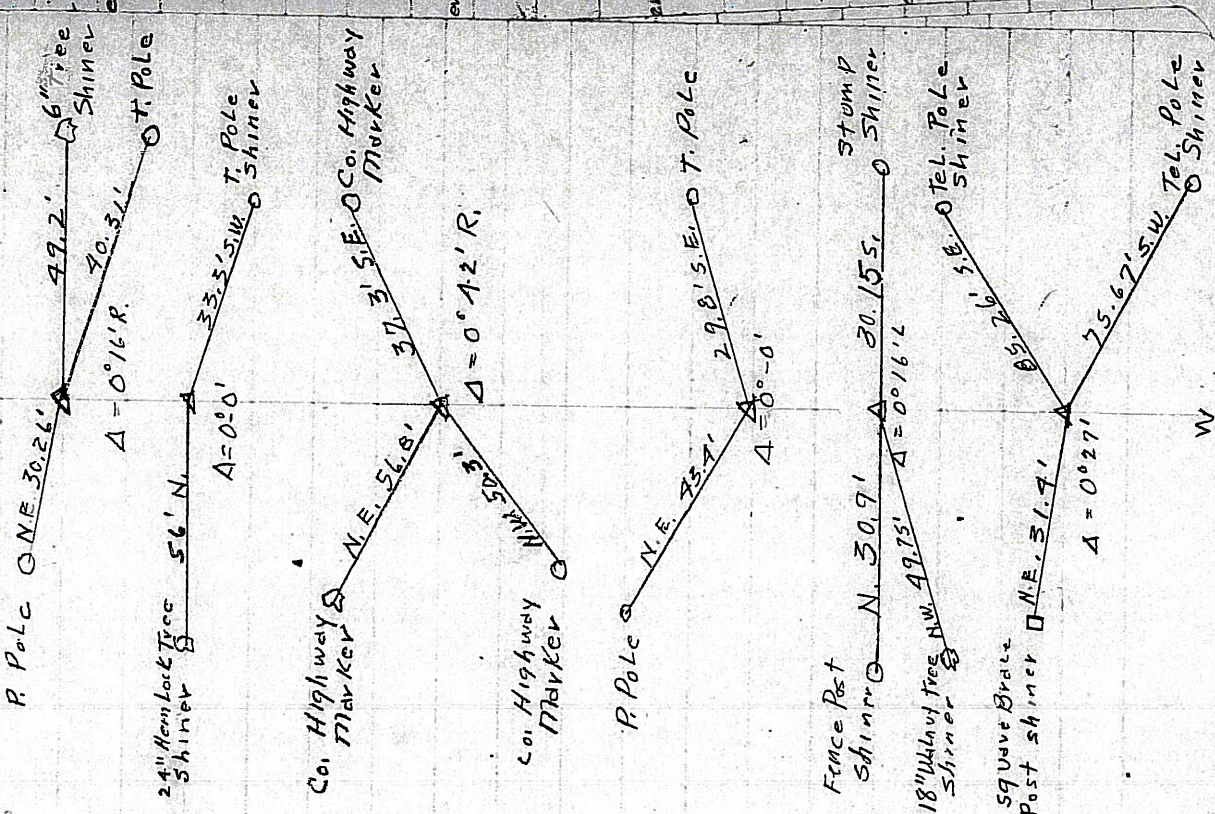 6" Tree
Shiner
P. Pole
N.E. 30.26'
49.2'
40.31'
T. Pole
Δ = 0°16' R.
24" Hemlock Tree
Shiner
56' N.
33.3' S.W.
T. Pole
Shiner
Δ = 0°0'
Co. Highway
Marker
N.E. 56.8'
37.3' S.E.
Co. Highway
Marker
Δ = 0°42' R.
50.3'
Co. Highway
Marker
P. Pole
N.E. 43.4'
29.8' S.E.
T. Pole
Δ = 0°-0'
Fence Post
Shiner
N. 30.9'
30.15 S.
Stump
Shiner
Δ = 0°16' L
18" Walnut Tree
Shiner
N.W. 49.75'
85.26' S.E.
Tel. Pole
Shiner
Square Brace
Post Shiner
N.E. 31.4'
75.67' S.W.
Tel. Pole
Shiner
Δ = 0°27'
W